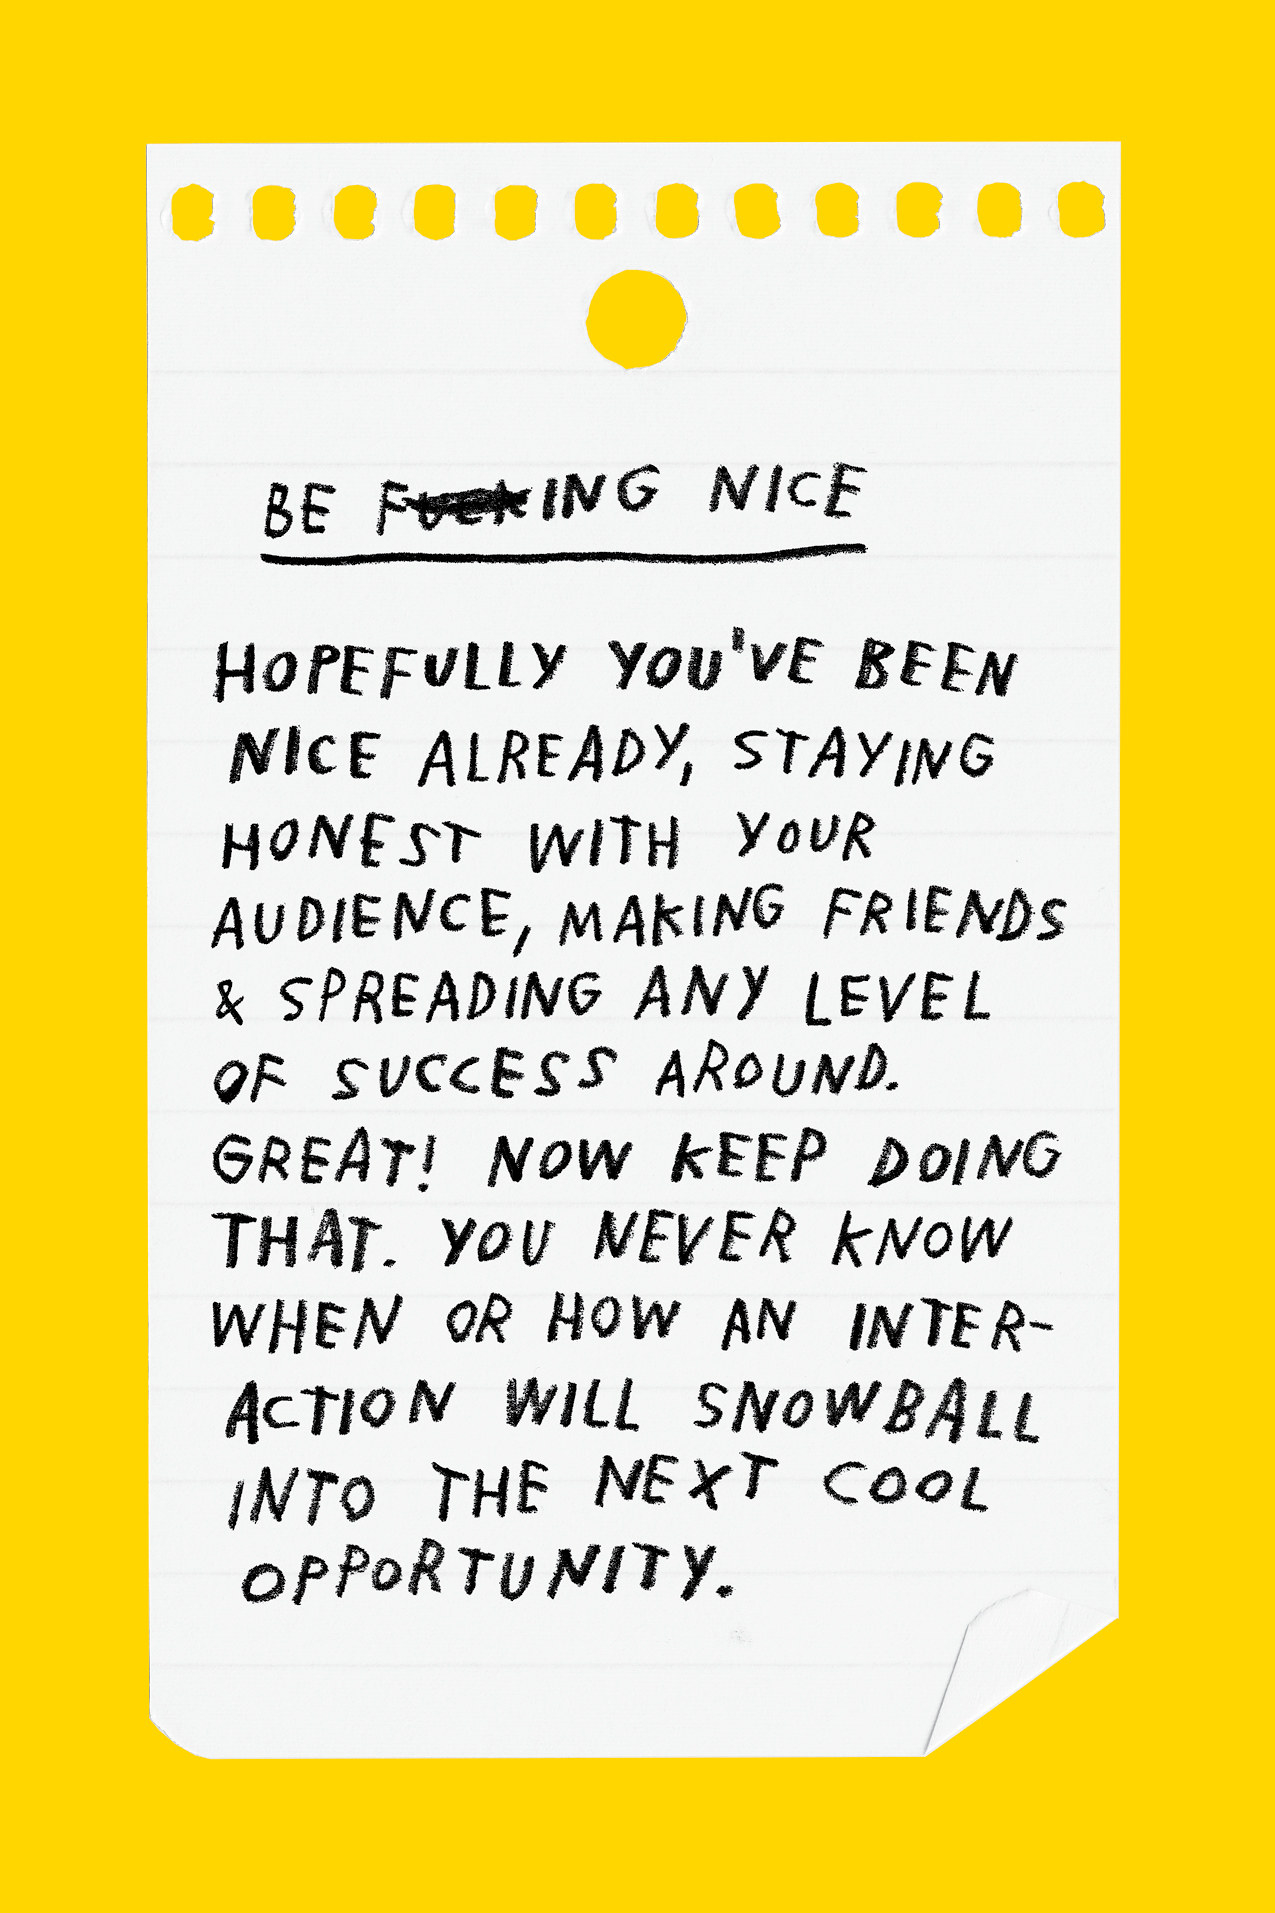 BE FUCKING NICE
HOPEFULLY YOU'VE BEEN
NICE ALREADY, STAYING
HONEST WITH YOUR
AUDIENCE, MAKING FRIENDS
& SPREADING ANY LEVEL
OF SUCCESS AROUND.
GREAT! NOW KEEP DOING
THAT. YOU NEVER KNOW
WHEN OR HOW AN INTER-
ACTION WILL SNOWBALL
INTO THE NEXT COOL
OPPORTUNITY.